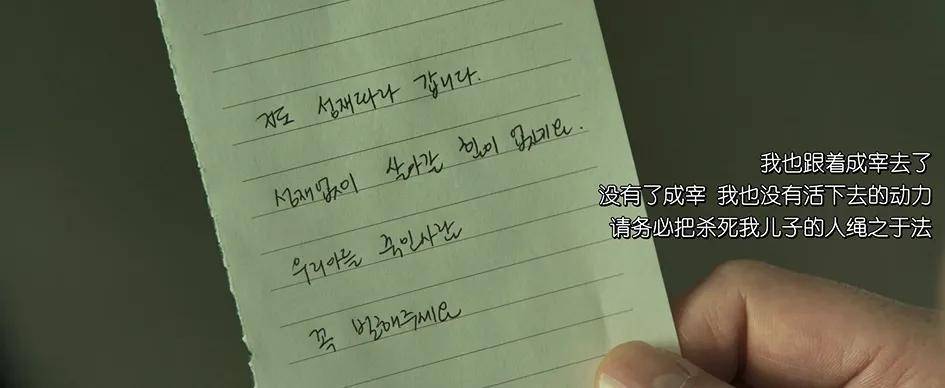 저도 성재따라 갑니다.
성재없이 살아갈 힘이 없네요.
우리아들 죽인사람
꼭 벌해주세요
我也跟着成宰去了
没有了成宰 我也没有活下去的动力
请务必把杀死我儿子的人绳之于法